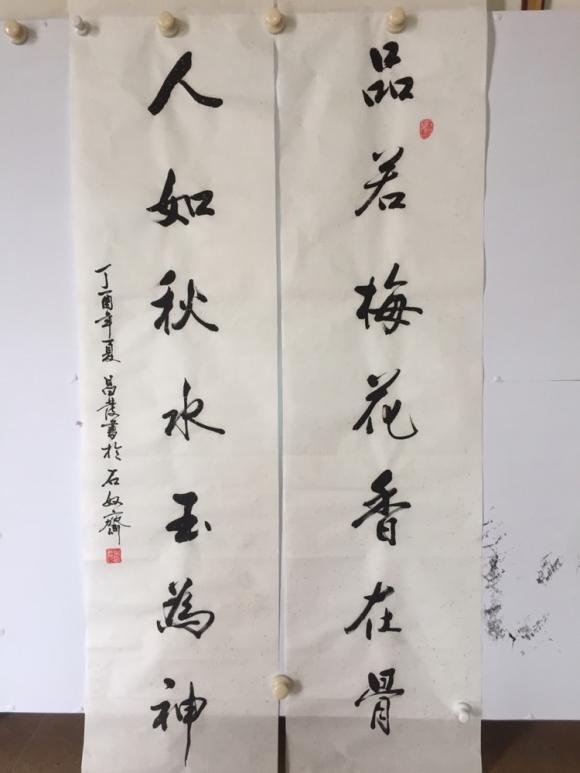 品若梅花香在骨
人如秋水玉為神
丁酉年夏 昌茂書於石奴齋